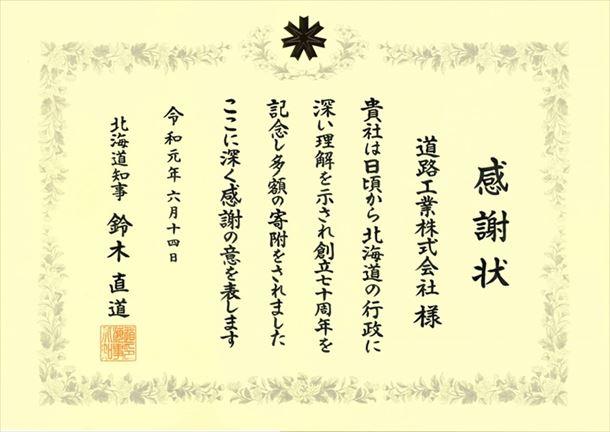 感謝状
道路工業株式会社 様
貴社は日頃から北海道の行政に
深い理解を示され創立七十周年を
記念し多額の寄附をされました
ここに深く感謝の意を表します
令和元年六月十四日
北海道知事 鈴木直道